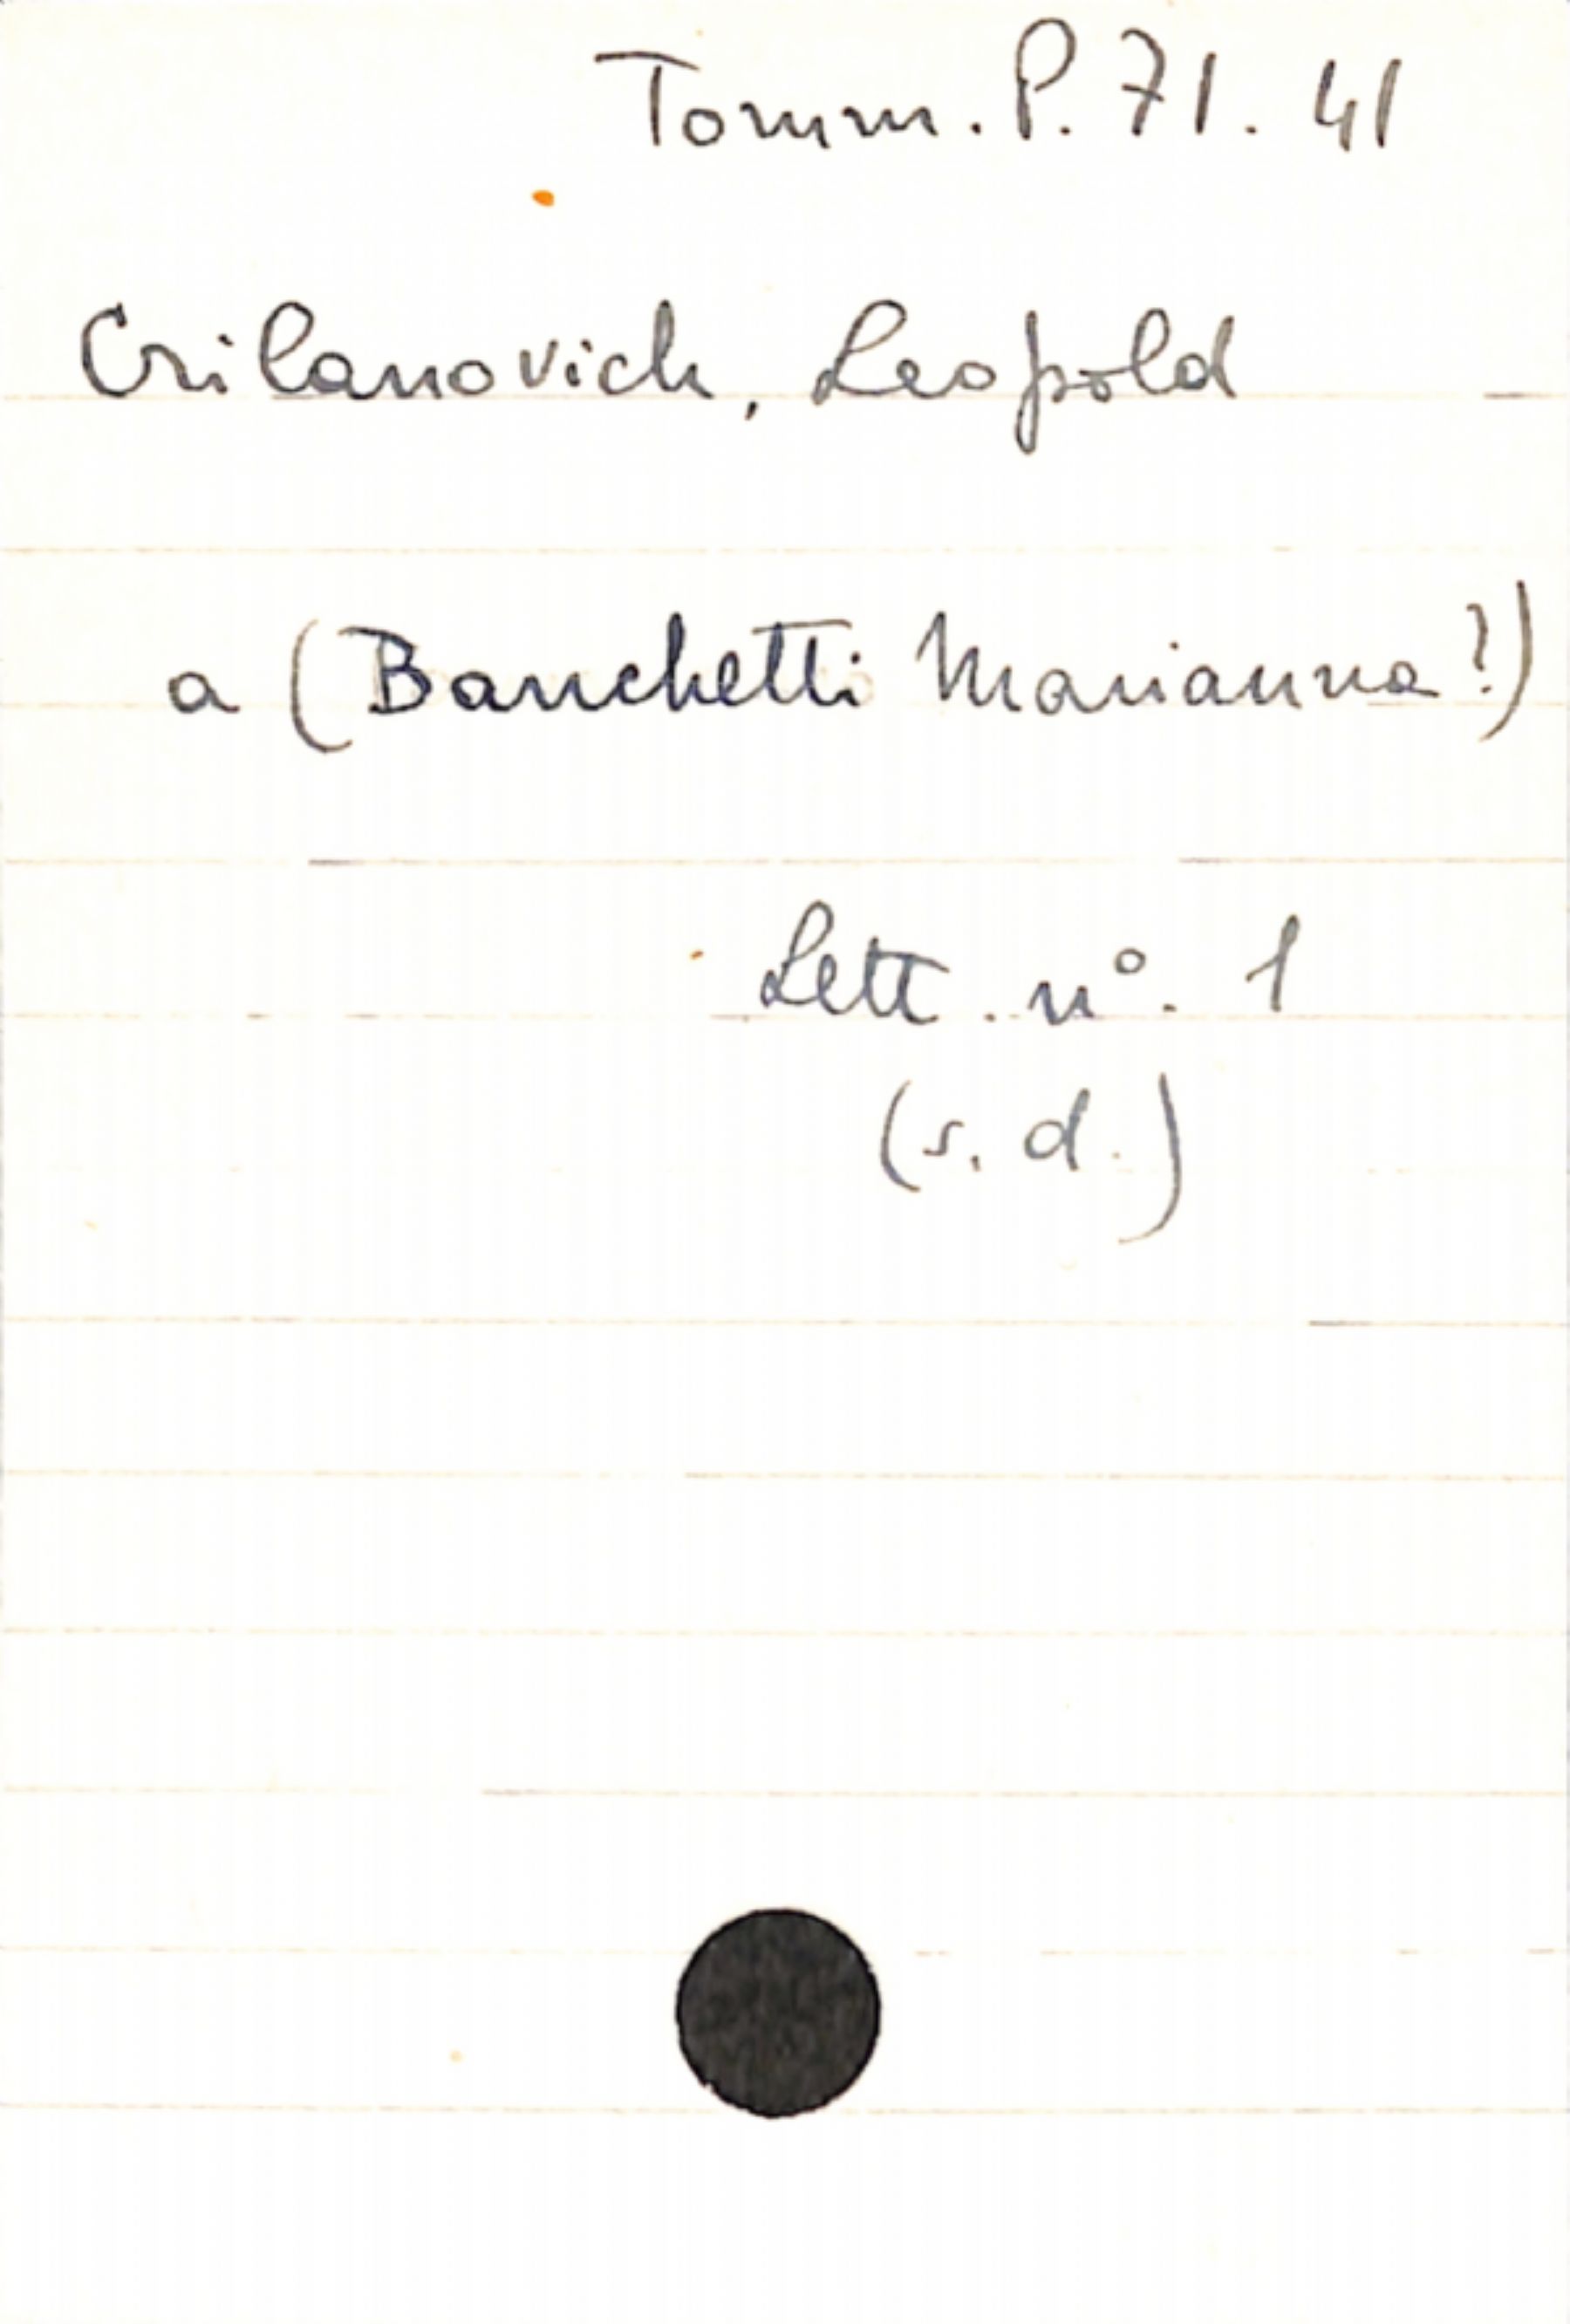 Tomm. P. 71. 41
Crilanovich, Leopold
a (Banchetti Marianna?)
Lett. n°. 1
(s. d.)